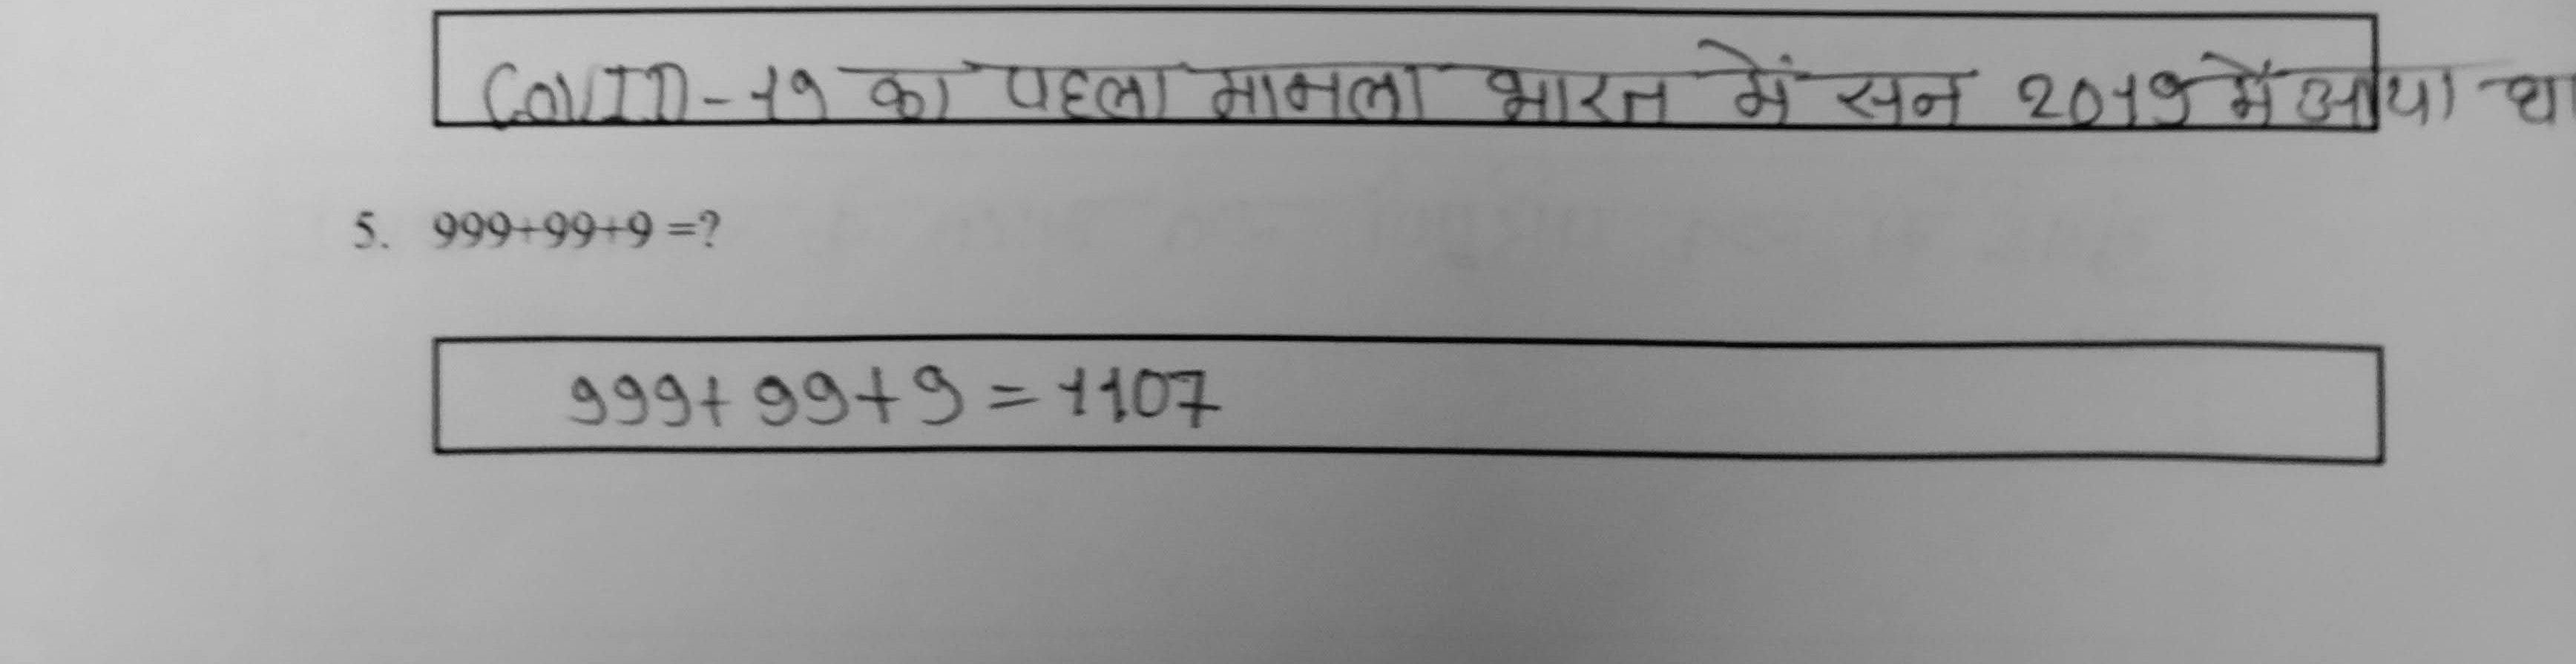 COVID-19 का पहला मामला भारत में सन 2019 में आया था
5. 999+99+9 =?
999+ 99+9 = 1107